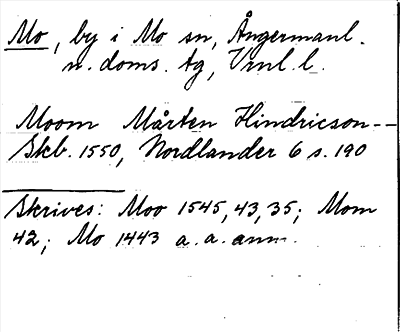 Mo, by i Mo sn, Ångermanl.
n. doms. tg, Vrnl. l.
Moom Mårten Hindricson--
Skb. 1550, Nordlander 6 s. 190
Skrives: Moo 1545, 43, 35; Mom
42; Mo 1443 a. a. anm.